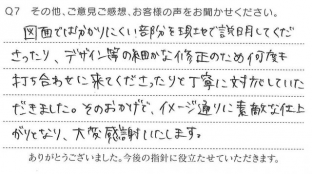 Q7 その他、ご意見ご感想、お客様の声をお聞かせください。
図面では分かりにくい部分を現場で説明してくだ
さったり、デザイン等の細かな修正のため何度も
打ち合わせに来てくださったりと丁寧に対応していた
だきました。そのおかげで、イメージ通りに素敵な仕上
がりとなり、大変感謝いたします。
ありがとうございました。今後の指針に役立たせていただきます。